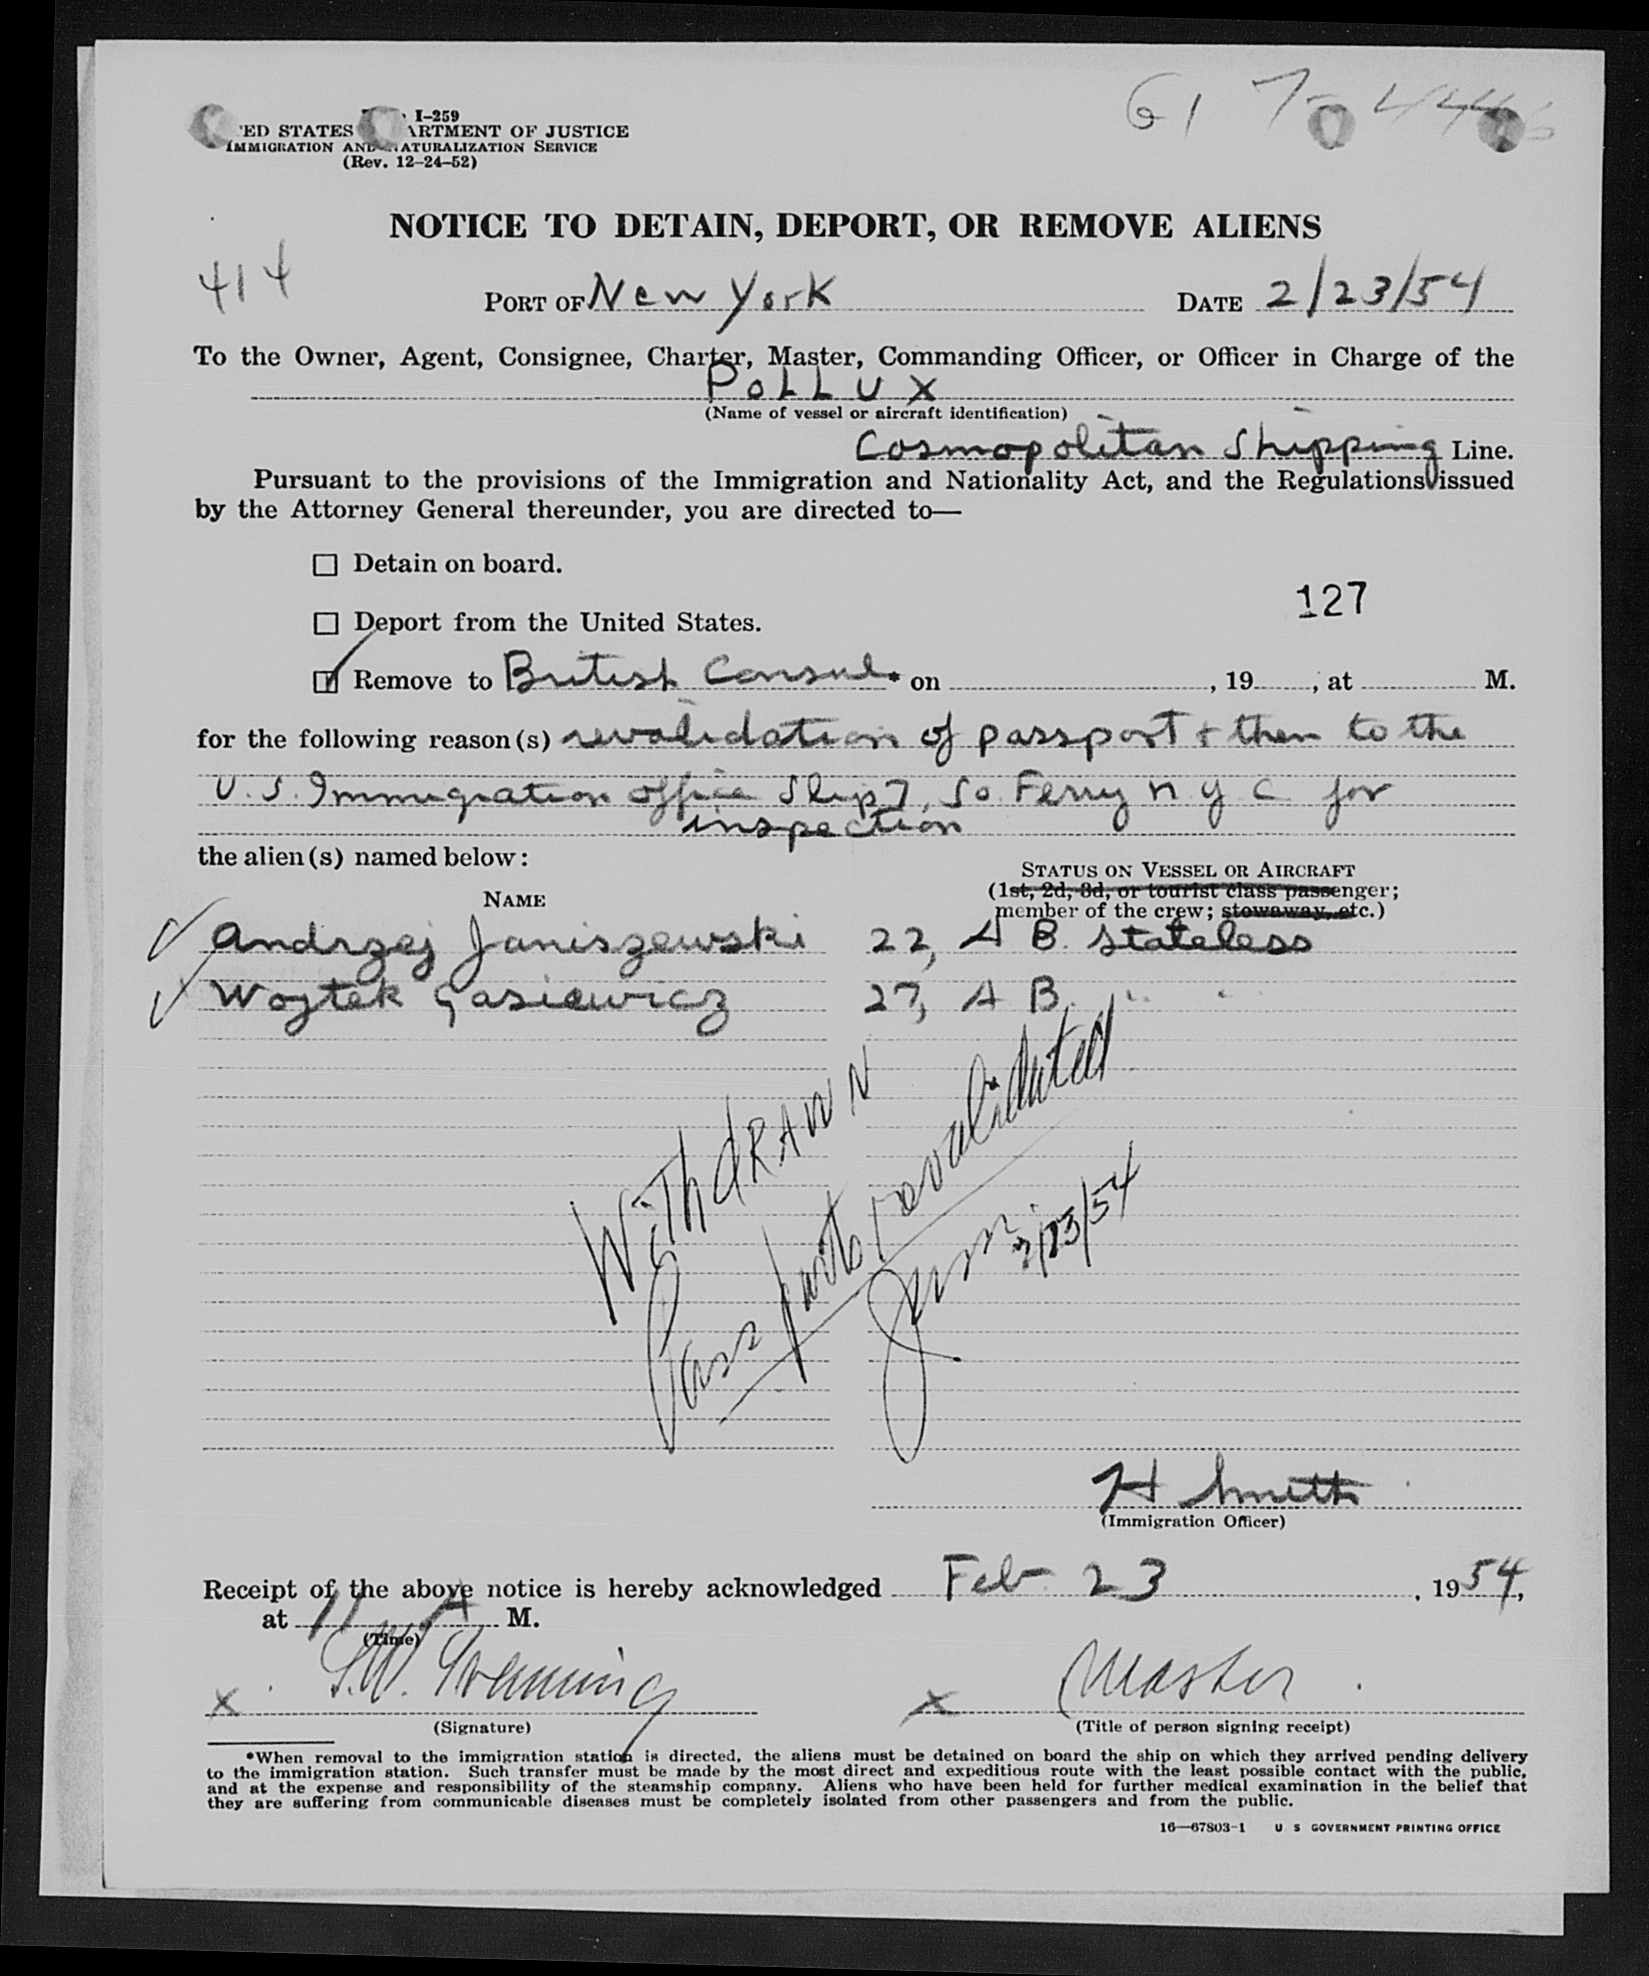 I-259
ED STATES ARTMENT OF JUSTICE
IMMIGRATION AND NATURALIZATION SERVICE
(Rev. 12-24-52)
NOTICE TO DETAIN, DEPORT, OR REMOVE ALIENS
414
PORT OF New York DATE 2/23/54
To the Owner, Agent, Consignee, Charter, Master, Commanding Officer, or Officer in Charge of the
POLLUX
(Name of vessel or aircraft identification)
Cosmopolitan Shipping Line.
Pursuant to the provisions of the Immigration and Nationality Act, and the Regulations issued
by the Attorney General thereunder, you are directed to—
☐ Detain on board.
127
☐ Deport from the United States.
☑ Remove to British Consul * on , 19 , at M.
for the following reason(s) revalidation of passport + then to the
U.S. Immigration office Slip 7, So. Ferry N Y C for
inspection
the alien(s) named below:
NAME
STATUS ON VESSEL OR AIRCRAFT
(1st, 2d, 3d, or tourist class passenger;
member of the crew; stowaway, etc.)
Andrzej Janiszewski 22, A B. Stateless
Wojtek Gasiewicz 27, A B. " "
WithdRAWN
Passports revalidated
2/23/54
H Smith
(Immigration Officer)
Receipt of the above notice is hereby acknowledged Feb 23 , 1954,
at 11 A M.
(Time)
x x Master
(Signature) (Title of person signing receipt)
*When removal to the immigration station is directed, the aliens must be detained on board the ship on which they arrived pending delivery
to the immigration station. Such transfer must be made by the most direct and expeditious route with the least possible contact with the public,
and at the expense and responsibility of the steamship company. Aliens who have been held for further medical examination in the belief that
they are suffering from communicable diseases must be completely isolated from other passengers and from the public.
16—67803-1 U S GOVERNMENT PRINTING OFFICE